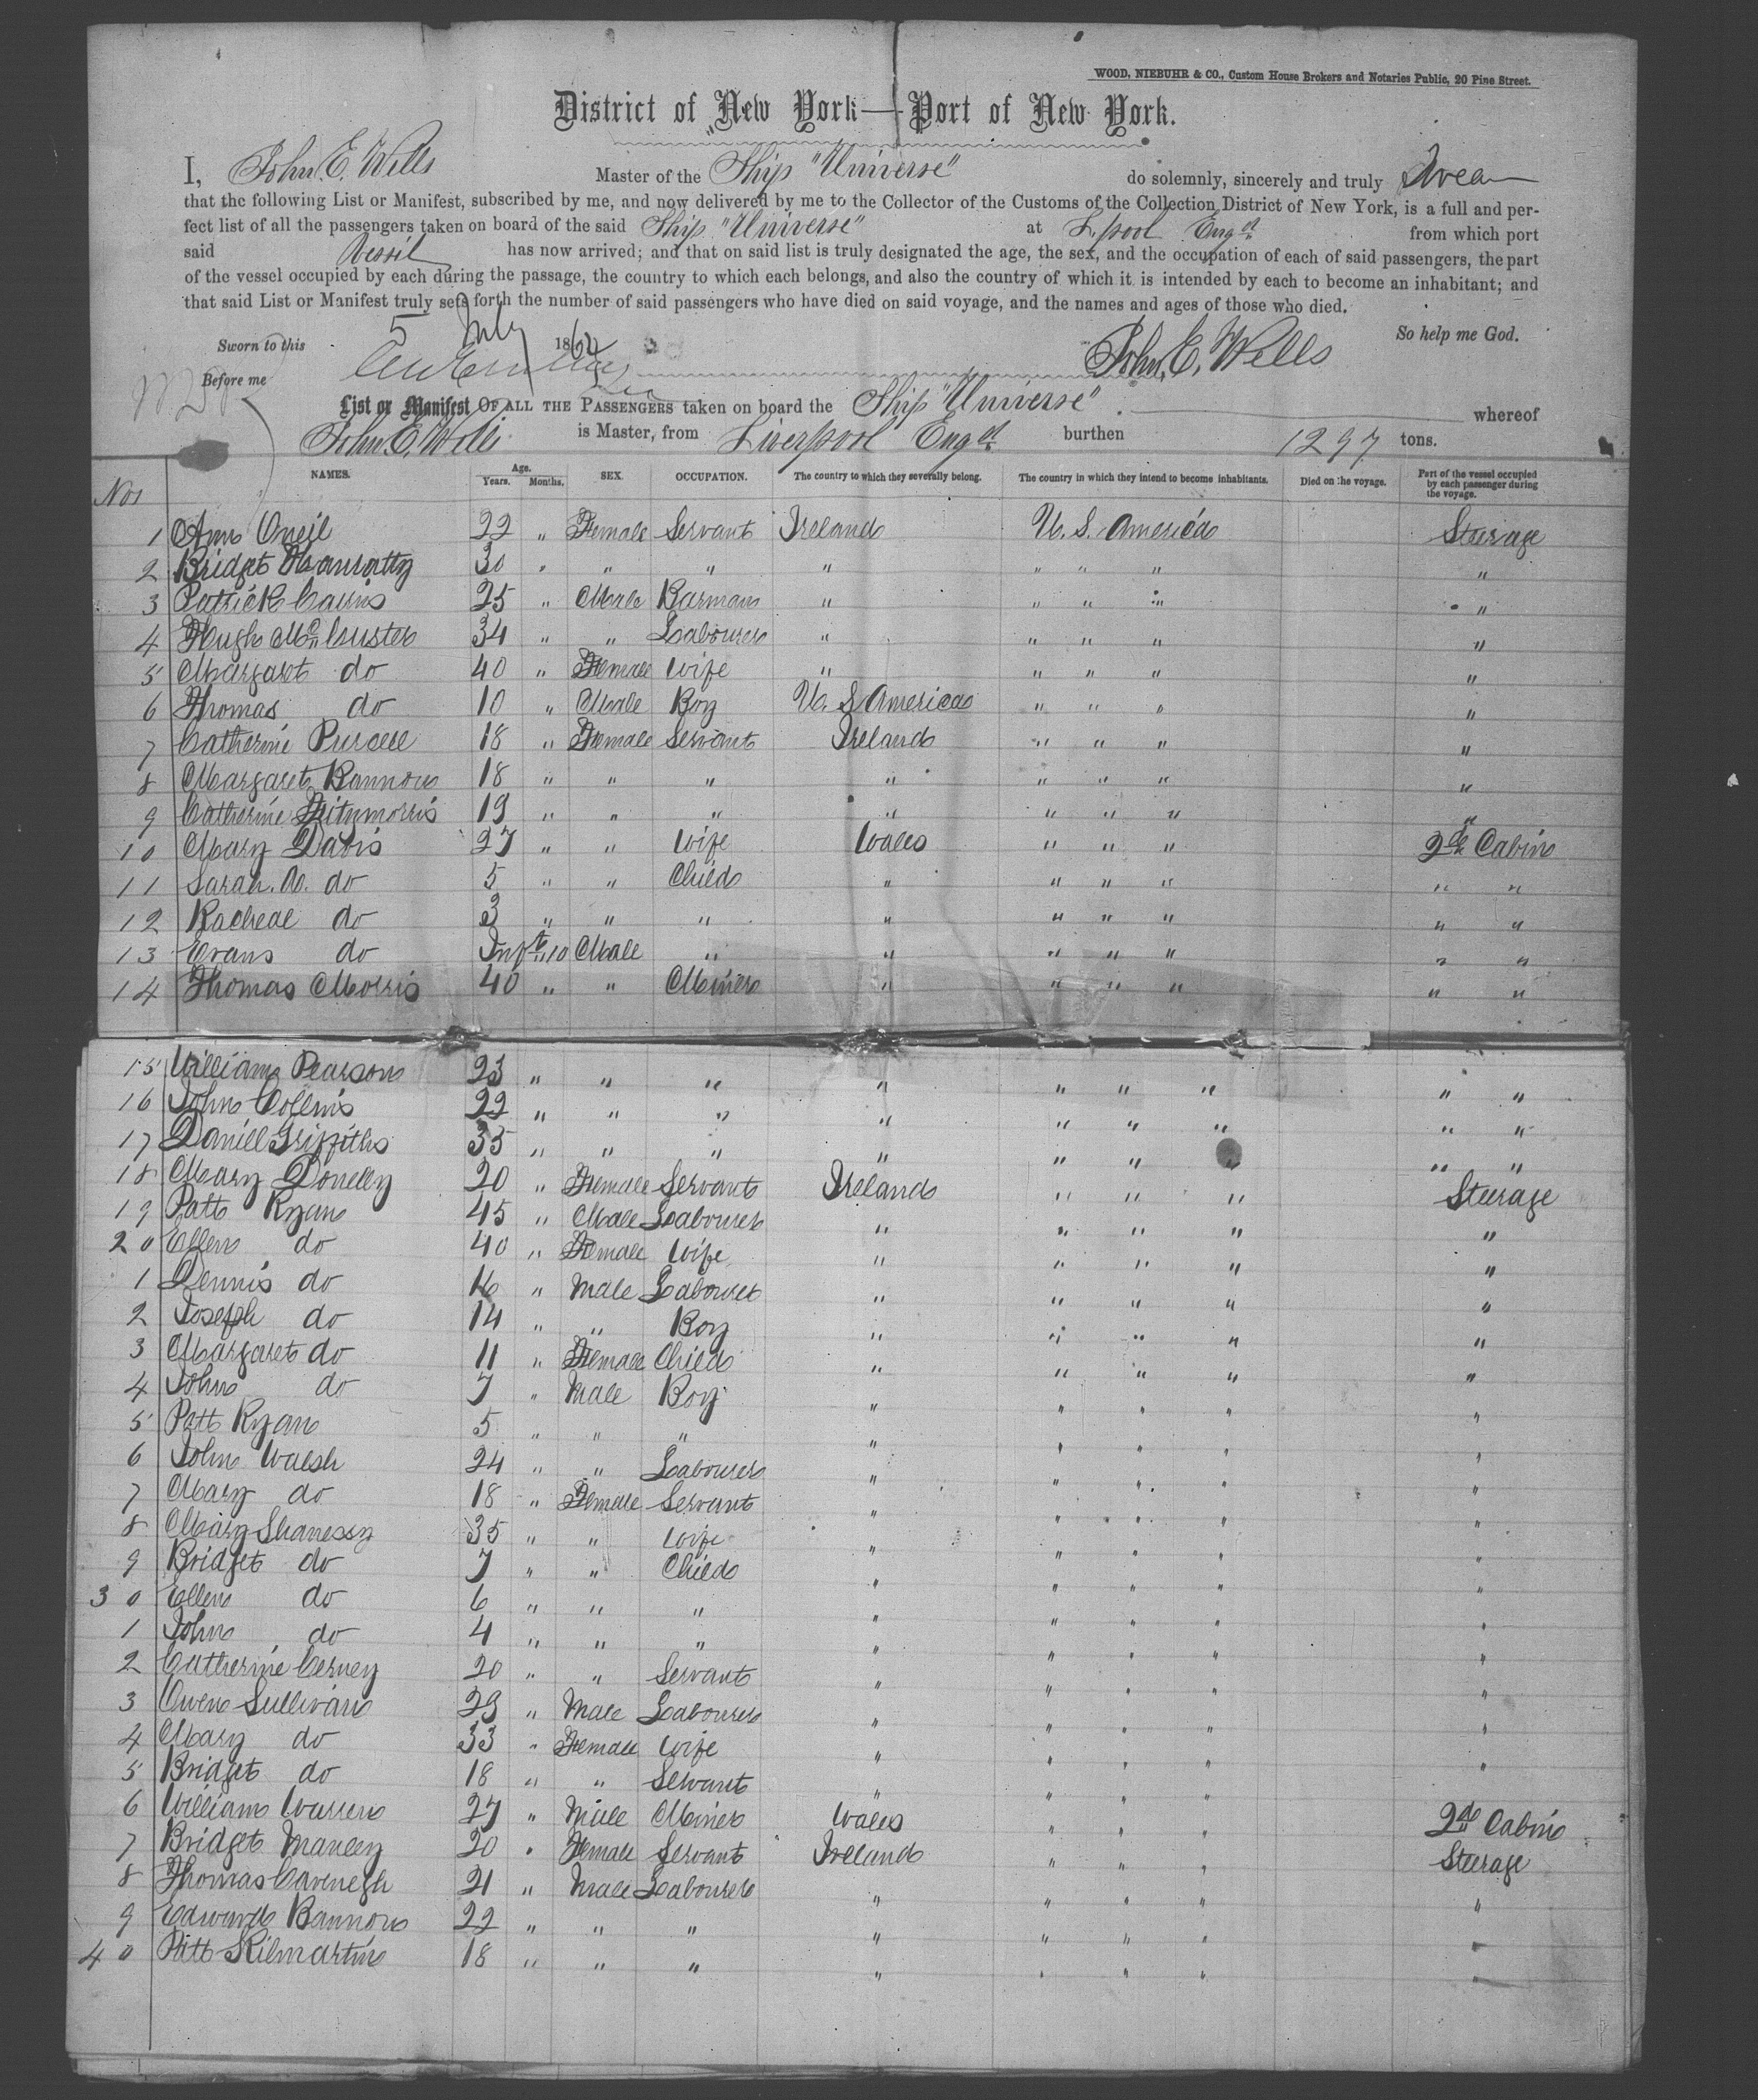 WOOD, NIEBUHR & CO., Custom House Brokers and Notaries Public, 20 Pine Street.
District of New York—Port of New York.
I, John. E. Wells Master of the Ship "Universe" do solemnly, sincerely and truly Swear
that the following List or Manifest, subscribed by me, and now delivered by me to the Collector of the Customs of the Collection District of New York, is a full and per-
fect list of all the passengers taken on board of the said Ship "Universe" at L.pool Engd from which port
said Vessil has now arrived; and that on said list is truly designated the age, the sex, and the occupation of each of said passengers, the part
of the vessel occupied by each during the passage, the country to which each belongs, and also the country of which it is intended by each to become an inhabitant; and
that said List or Manifest truly sets forth the number of said passengers who have died on said voyage, and the names and ages of those who died.
Sworn to this 5 July 186 So help me God.
Before me John. E. Wells
List or Manifest OF ALL THE PASSENGERS taken on board the Ship "Universe" whereof
John. E. Wells is Master, from Liverpool Engd burthen 1297 tons.
Nos NAMES. Age. Years. Months. SEX. OCCUPATION. The country to which they severally belong. The country in which they intend to become inhabitants. Died on the voyage. Part of the vessel occupied by each passenger during the voyage.
1 Ann Oneil 22 " Female Servant Ireland U. S. America Steerage
2 Bridget Hanratty 30 " " " " " " " "
3 Patrick Cairns 25 " Male " " " " "
4 Hugh 34 " " Labourer " " " " "
5 Margaret do 40 " Female Wife " " " " "
6 Thomas do 10 " Male Boy U. S America " " " "
7 Catherine Purcell 18 " Female Servant Ireland " " " "
8 Margaret Bannon 18 " " " " " " " "
9 Catherine Fitzmorris 19 " " " " " " " "
10 Mary Davis 27 " " Wife Wales " " " 2nd Cabin
11 Sarah. A. do 5 " " Child " " " " " "
12 Racheal do 3 " " " " " " " " "
13 Evans do Inft " 10 Male " " " " " " "
14 Thomas Morris 40 " " Miner " " " " " "
15 William Pearson 23 " " " " " " " " "
16 John Collins 22 " " " " " " " " "
17 Daniel Griffiths 35 " " " " " " " " "
18 Mary Donelly 20 " Female Servant Ireland " " " Steerage
19 Patt Ryan 45 " Male Labourer " " " " "
20 Ellen do 40 " Female Wife " " " " "
1 Dennis do 16 " Male Labourer " " " " "
2 Joseph do 14 " " Boy " " " " "
3 Margaret do 11 " Female Child " " " " "
4 John do 7 " Male Boy " " " " "
5 Patt Ryan 5 " " " " " " " "
6 John Walsh 24 " " Labourer " " " " "
7 Mary do 18 " Female Servant " " " " "
8 Mary Shanessy 35 " " Wife " " " " "
9 Bridget do 7 " " Child " " " " "
30 Ellen do 6 " " " " " " " "
1 John do 4 " " " " " " " "
2 Catherine Cerney 20 " " Servant " " " " "
3 Owen Sullivan 29 " Male Labourer " " " " "
4 Mary do 33 " Female Wife " " " " "
5 Bridget do 18 " " Servant " " " " "
6 William Warren 27 " Male Miner Wales " " " 2nd Cabin
7 Bridget Manley 20 " Female Servant Ireland " " " Steerage
8 Thomas Cavenegh 21 " Male Labourer " " " " "
9 Edward Bannon 22 " " " " " " " "
40 Patt Kilmartin 18 " " " " " " " "